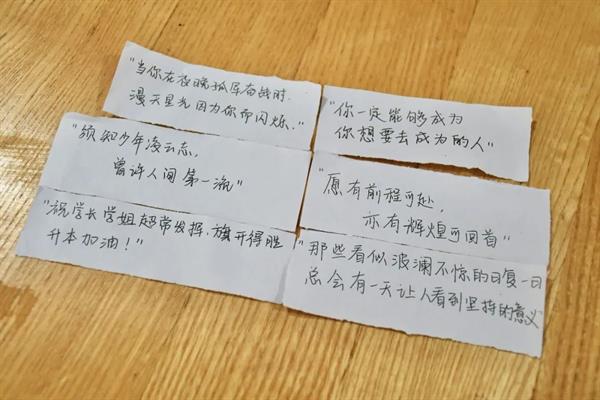 "当你在夜晚孤军奋战时,
漫天星光因为你而闪烁."
"须知少年凌云志,
曾许人间第一流"
"祝学长学姐超常发挥,旗开得胜
升本加油!"
"你一定能够成为
你想要去成为的人"
"愿有前程可赴,
亦有辉煌可回首"
"那些看似波澜不惊的日复一日
总会有一天让人看到坚持的意义"